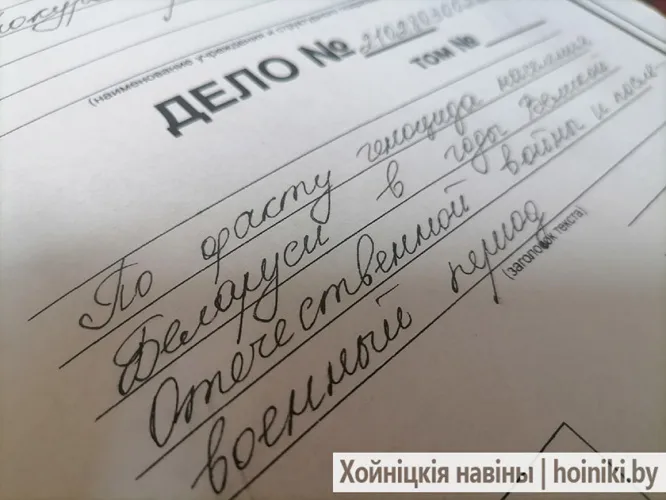 (наименование учреждения и структурного
ДЕЛО №
ТОМ №
По факту геноцида населения
Беларуси в годы Великой
Отечественной войны и после-
военный период
(заголовок текста)
Хойніцкія навіны | hoiniki.by